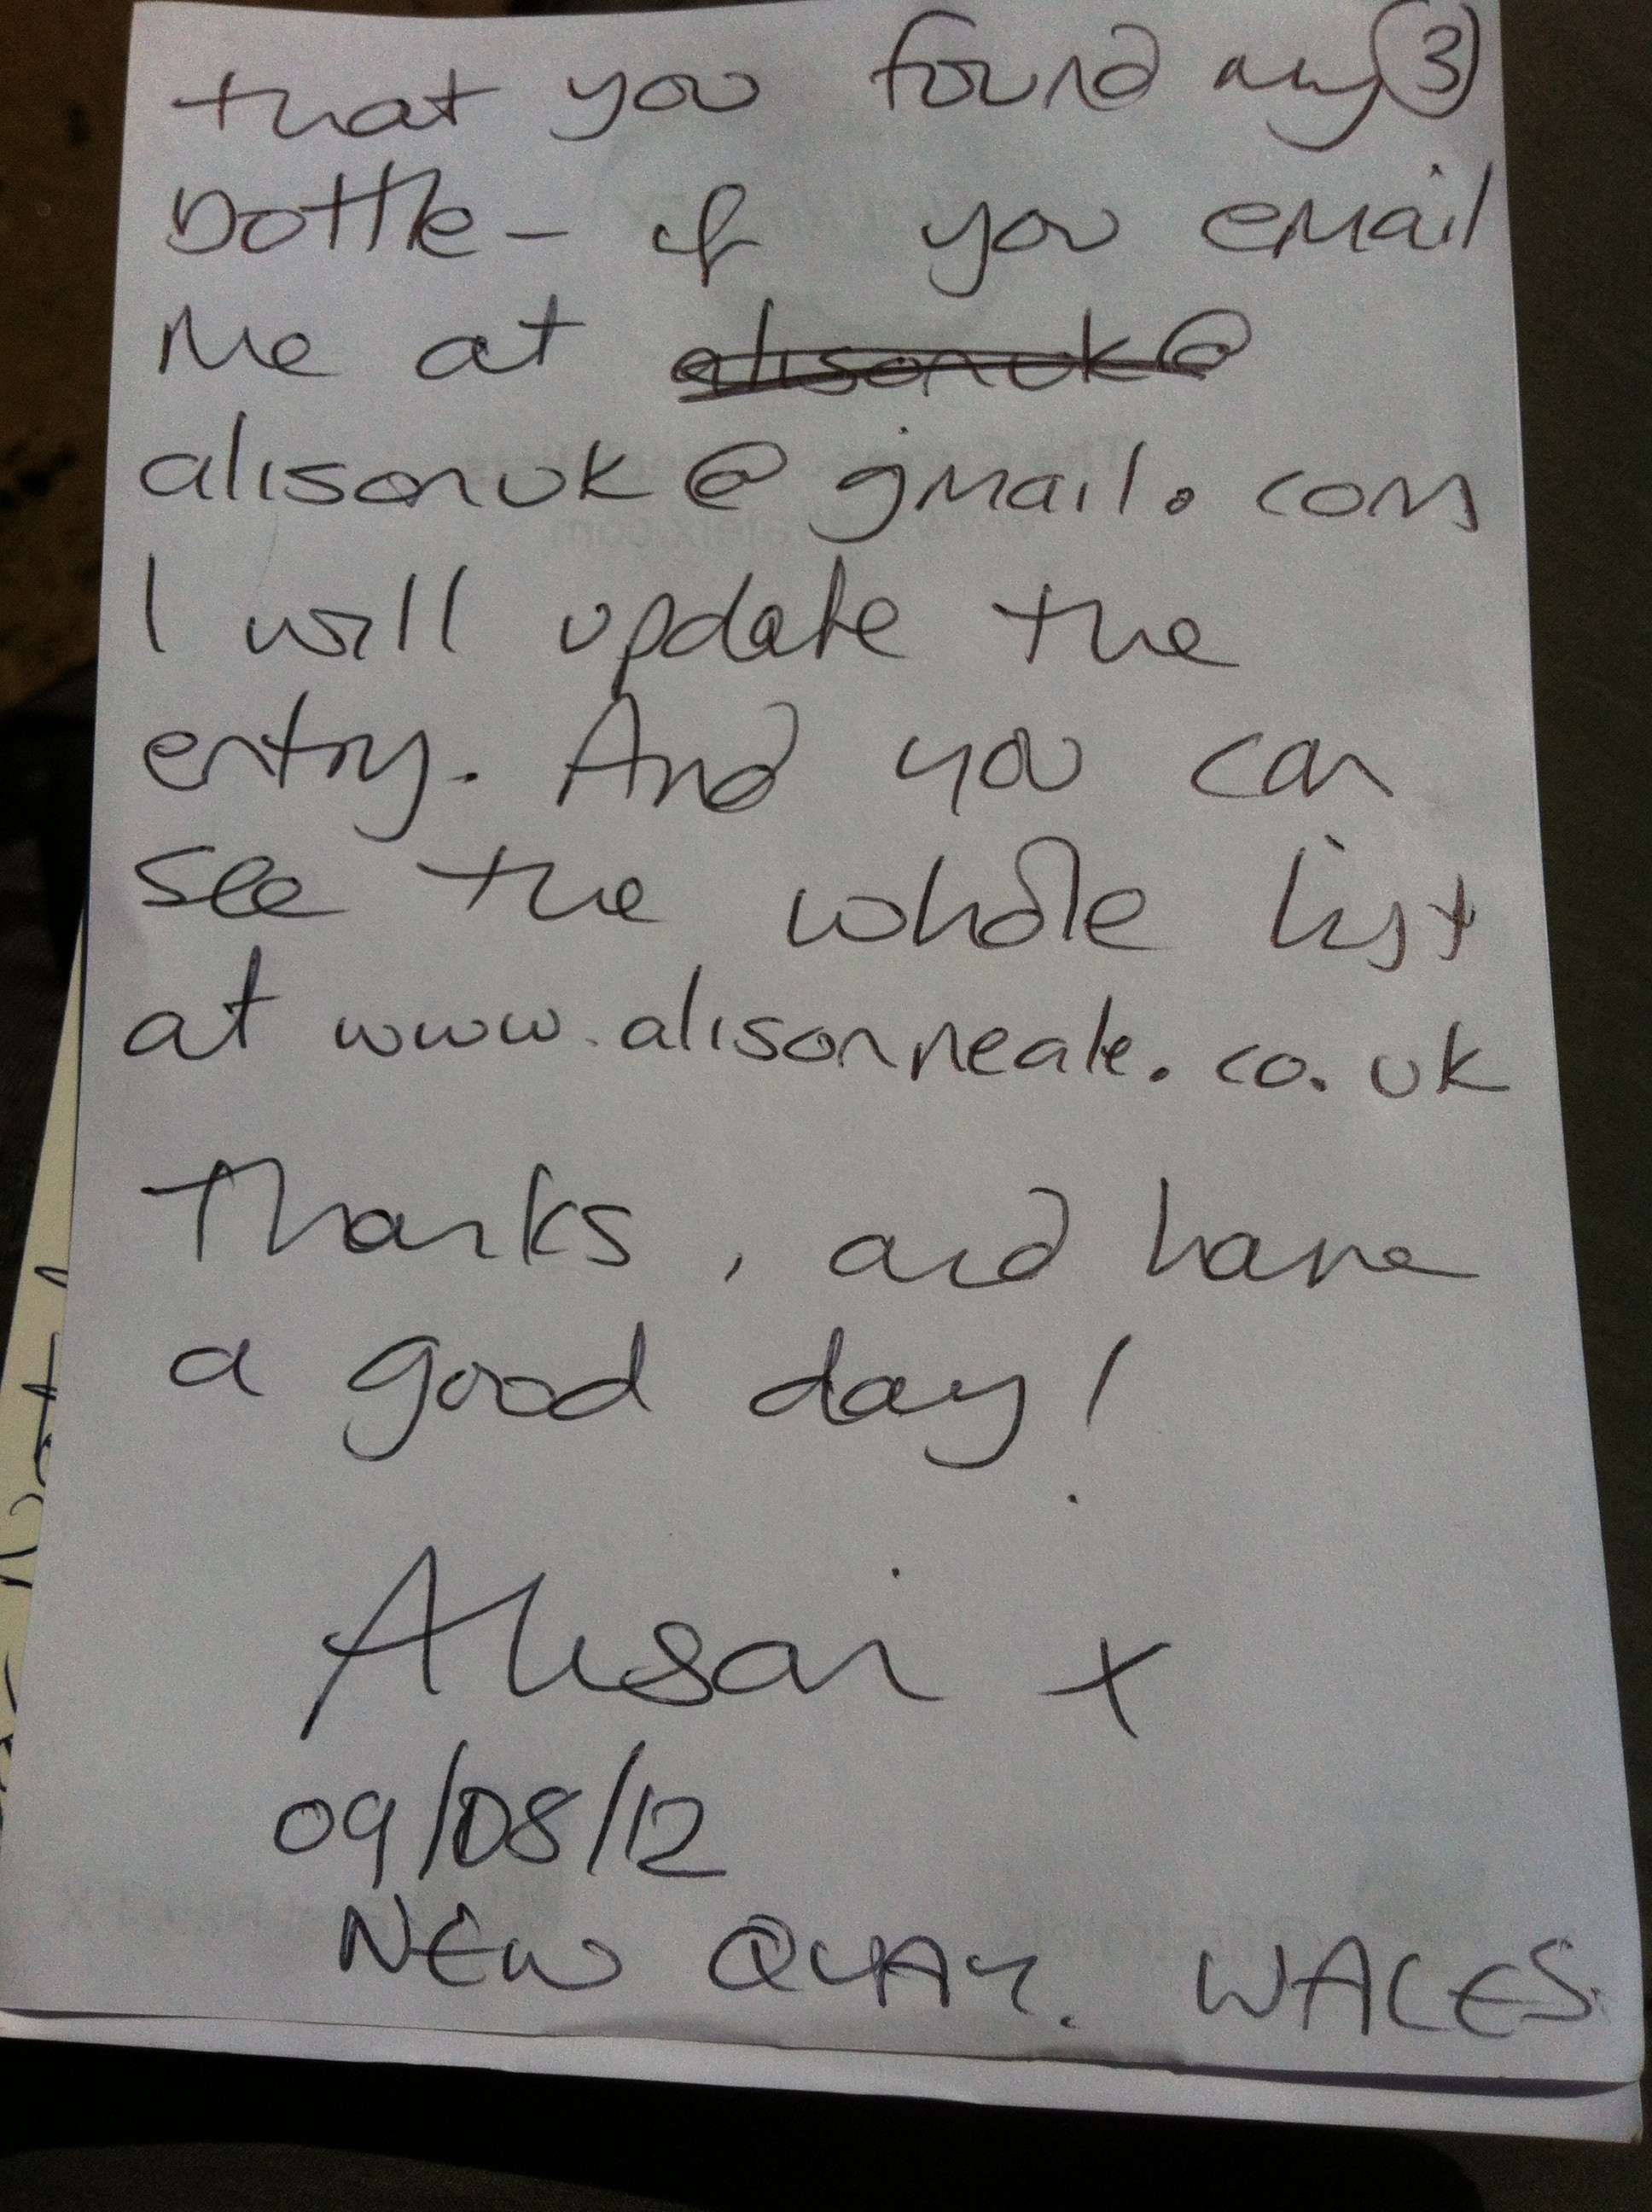 that you found my (3)
bottle - if you email
me at alisonuk@
alisonuk@gmail.com
I will update the
entry. And you can
see the whole list
at www.alisonneale.co.uk
Thanks, and have
a good day!
Alison x
09/08/12
NEW QUAY. WALES